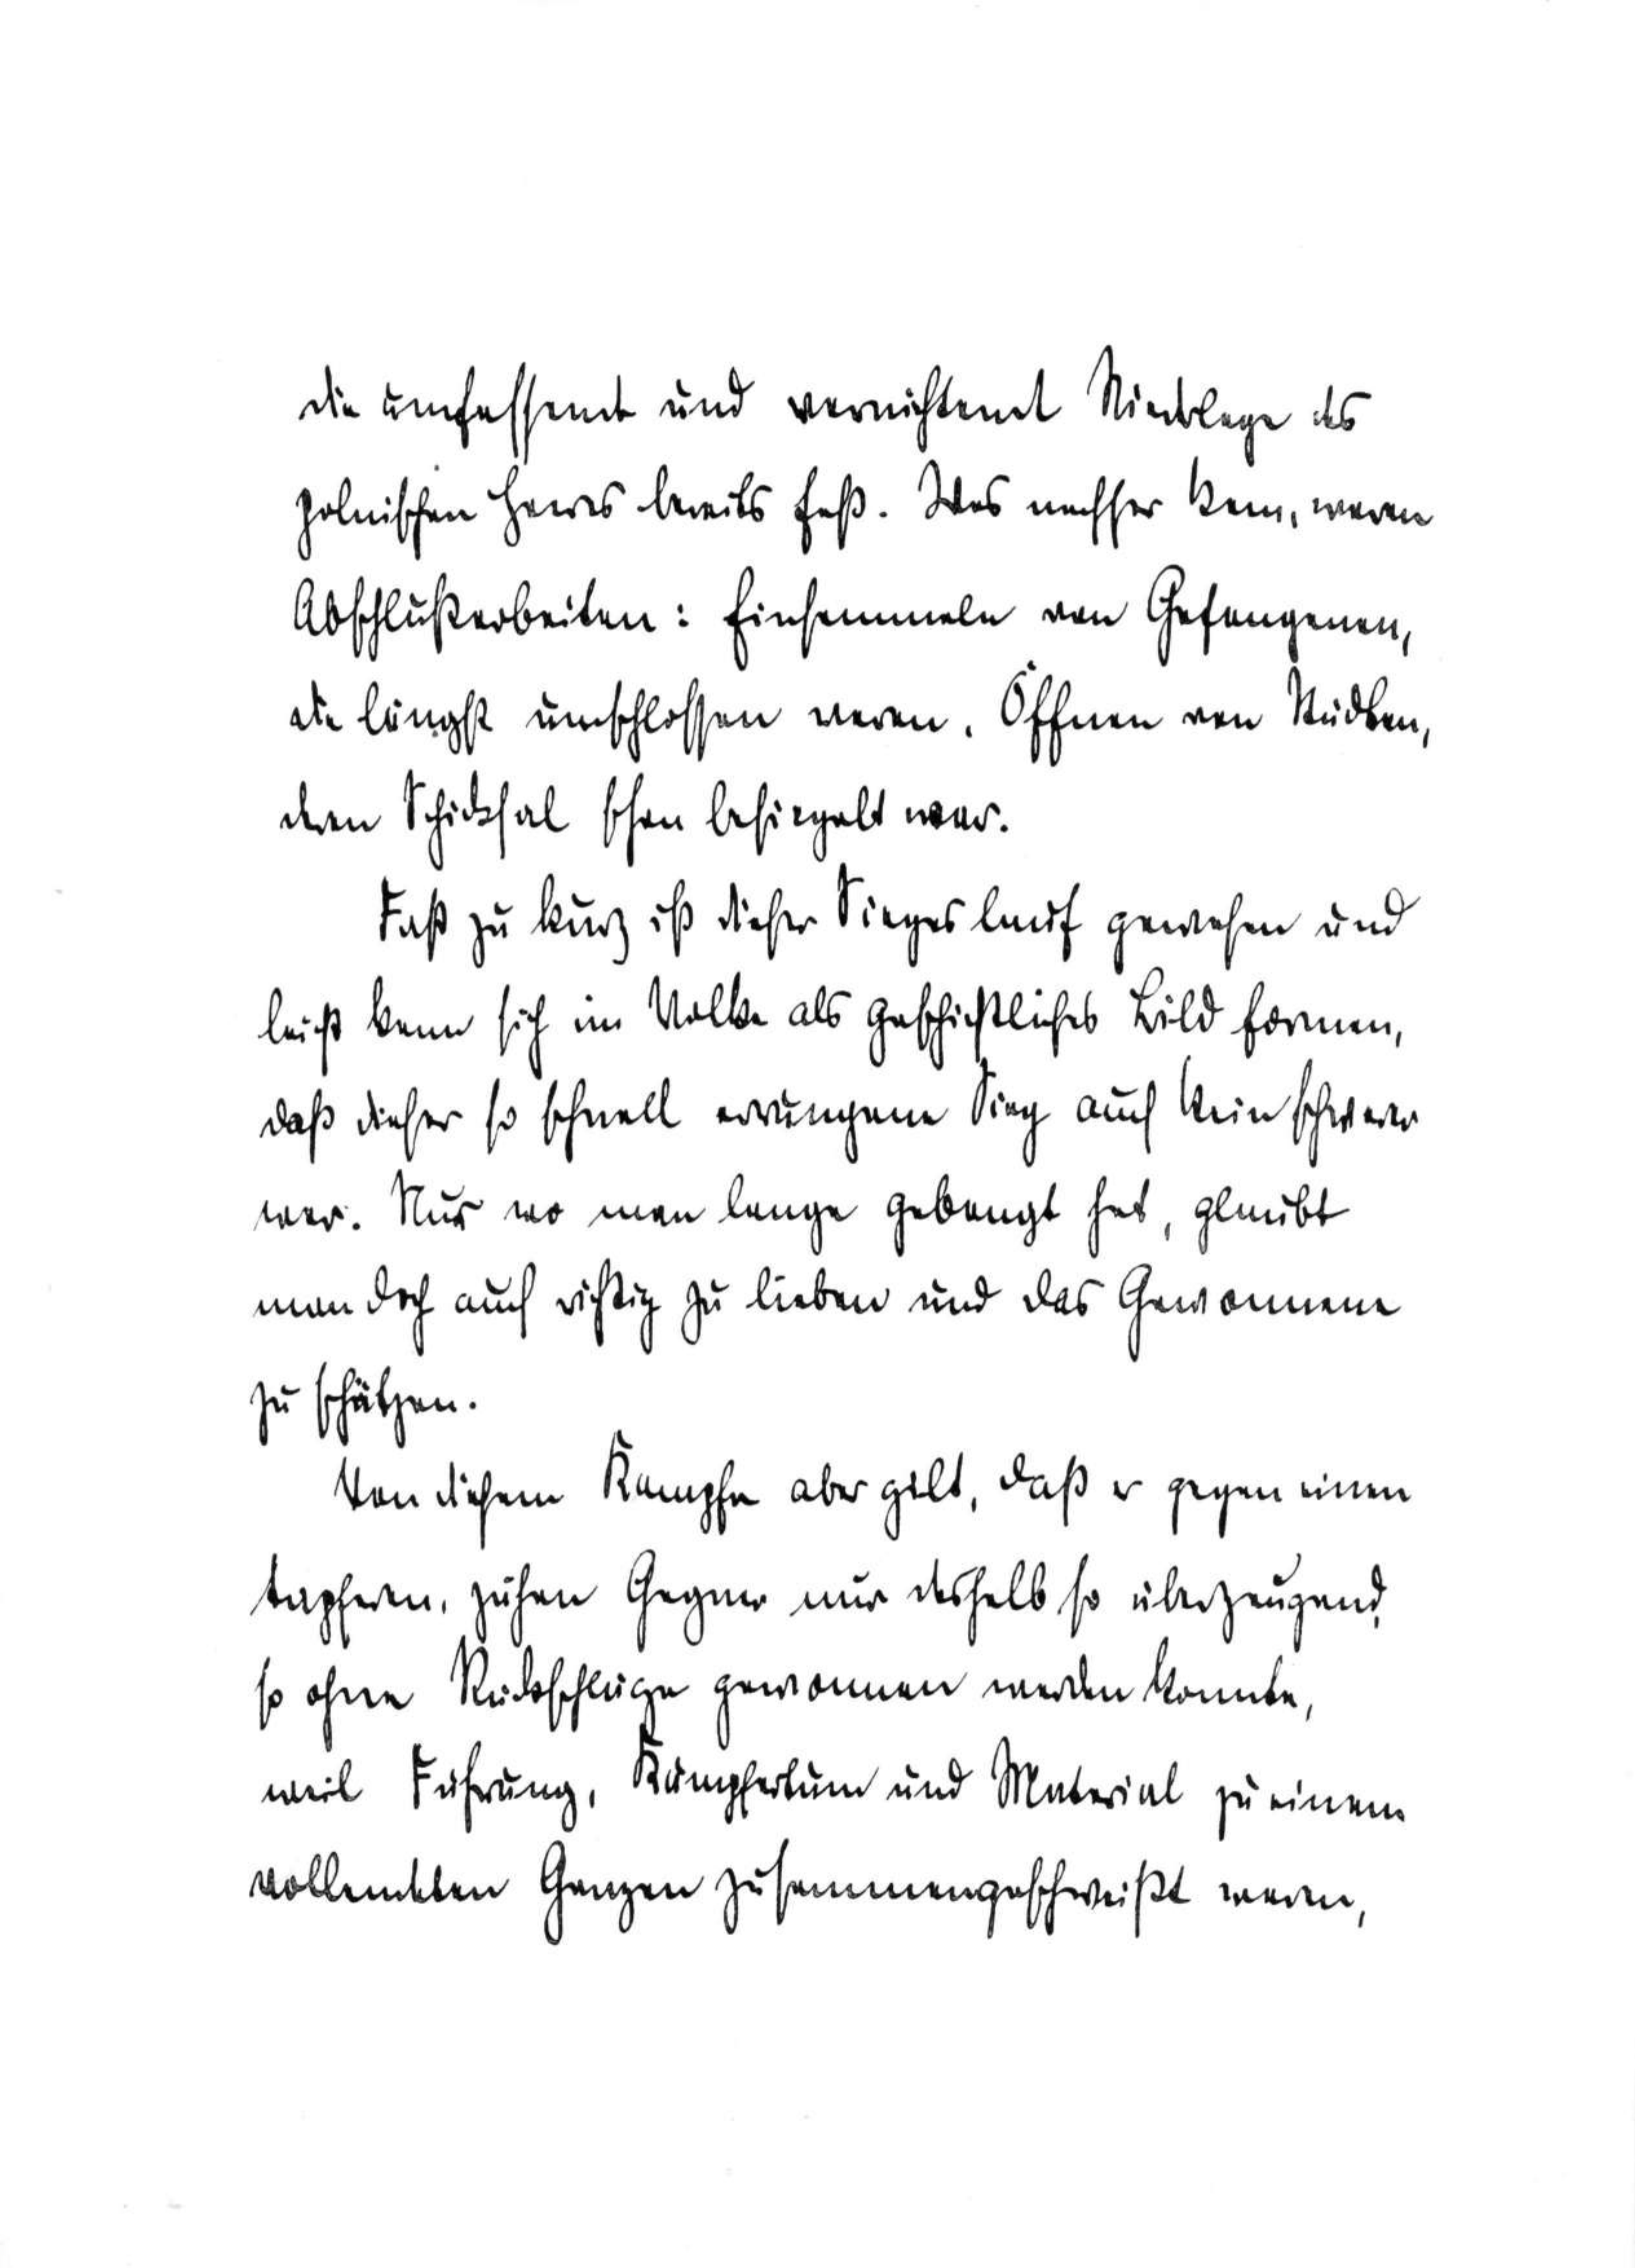 die umfassende und vernichtende Niederlage des
polnischen Heeres bereits fest. Was nachher kam, waren
Abschlußarbeiten: Einsammeln von Gefangenen,
die längst umschlossen waren, Öffnen von Städten,
deren Schicksal schon besiegelt war.
Fast zu kurz ist dieser Siegeslauf gewesen und
leicht kann sich im Volke als geschichtliches Bild formen,
daß dieser so schnell errungene Sieg auch kein schwerer
war. Nur wo man lange gebangt hat, glaubt
man doch auch richtig zu lieben und das Gewonnene
zu schätzen.
Von diesem Kampfe aber gilt, daß er gegen einen
tapferen, zähen Gegner nur deshalb so überzeugend,
so ohne Rückschläge gewonnen werden konnte,
weil Führung, Kämpfertum und Material zu einem
vollendeten Ganzen zusammengeschweißt waren,